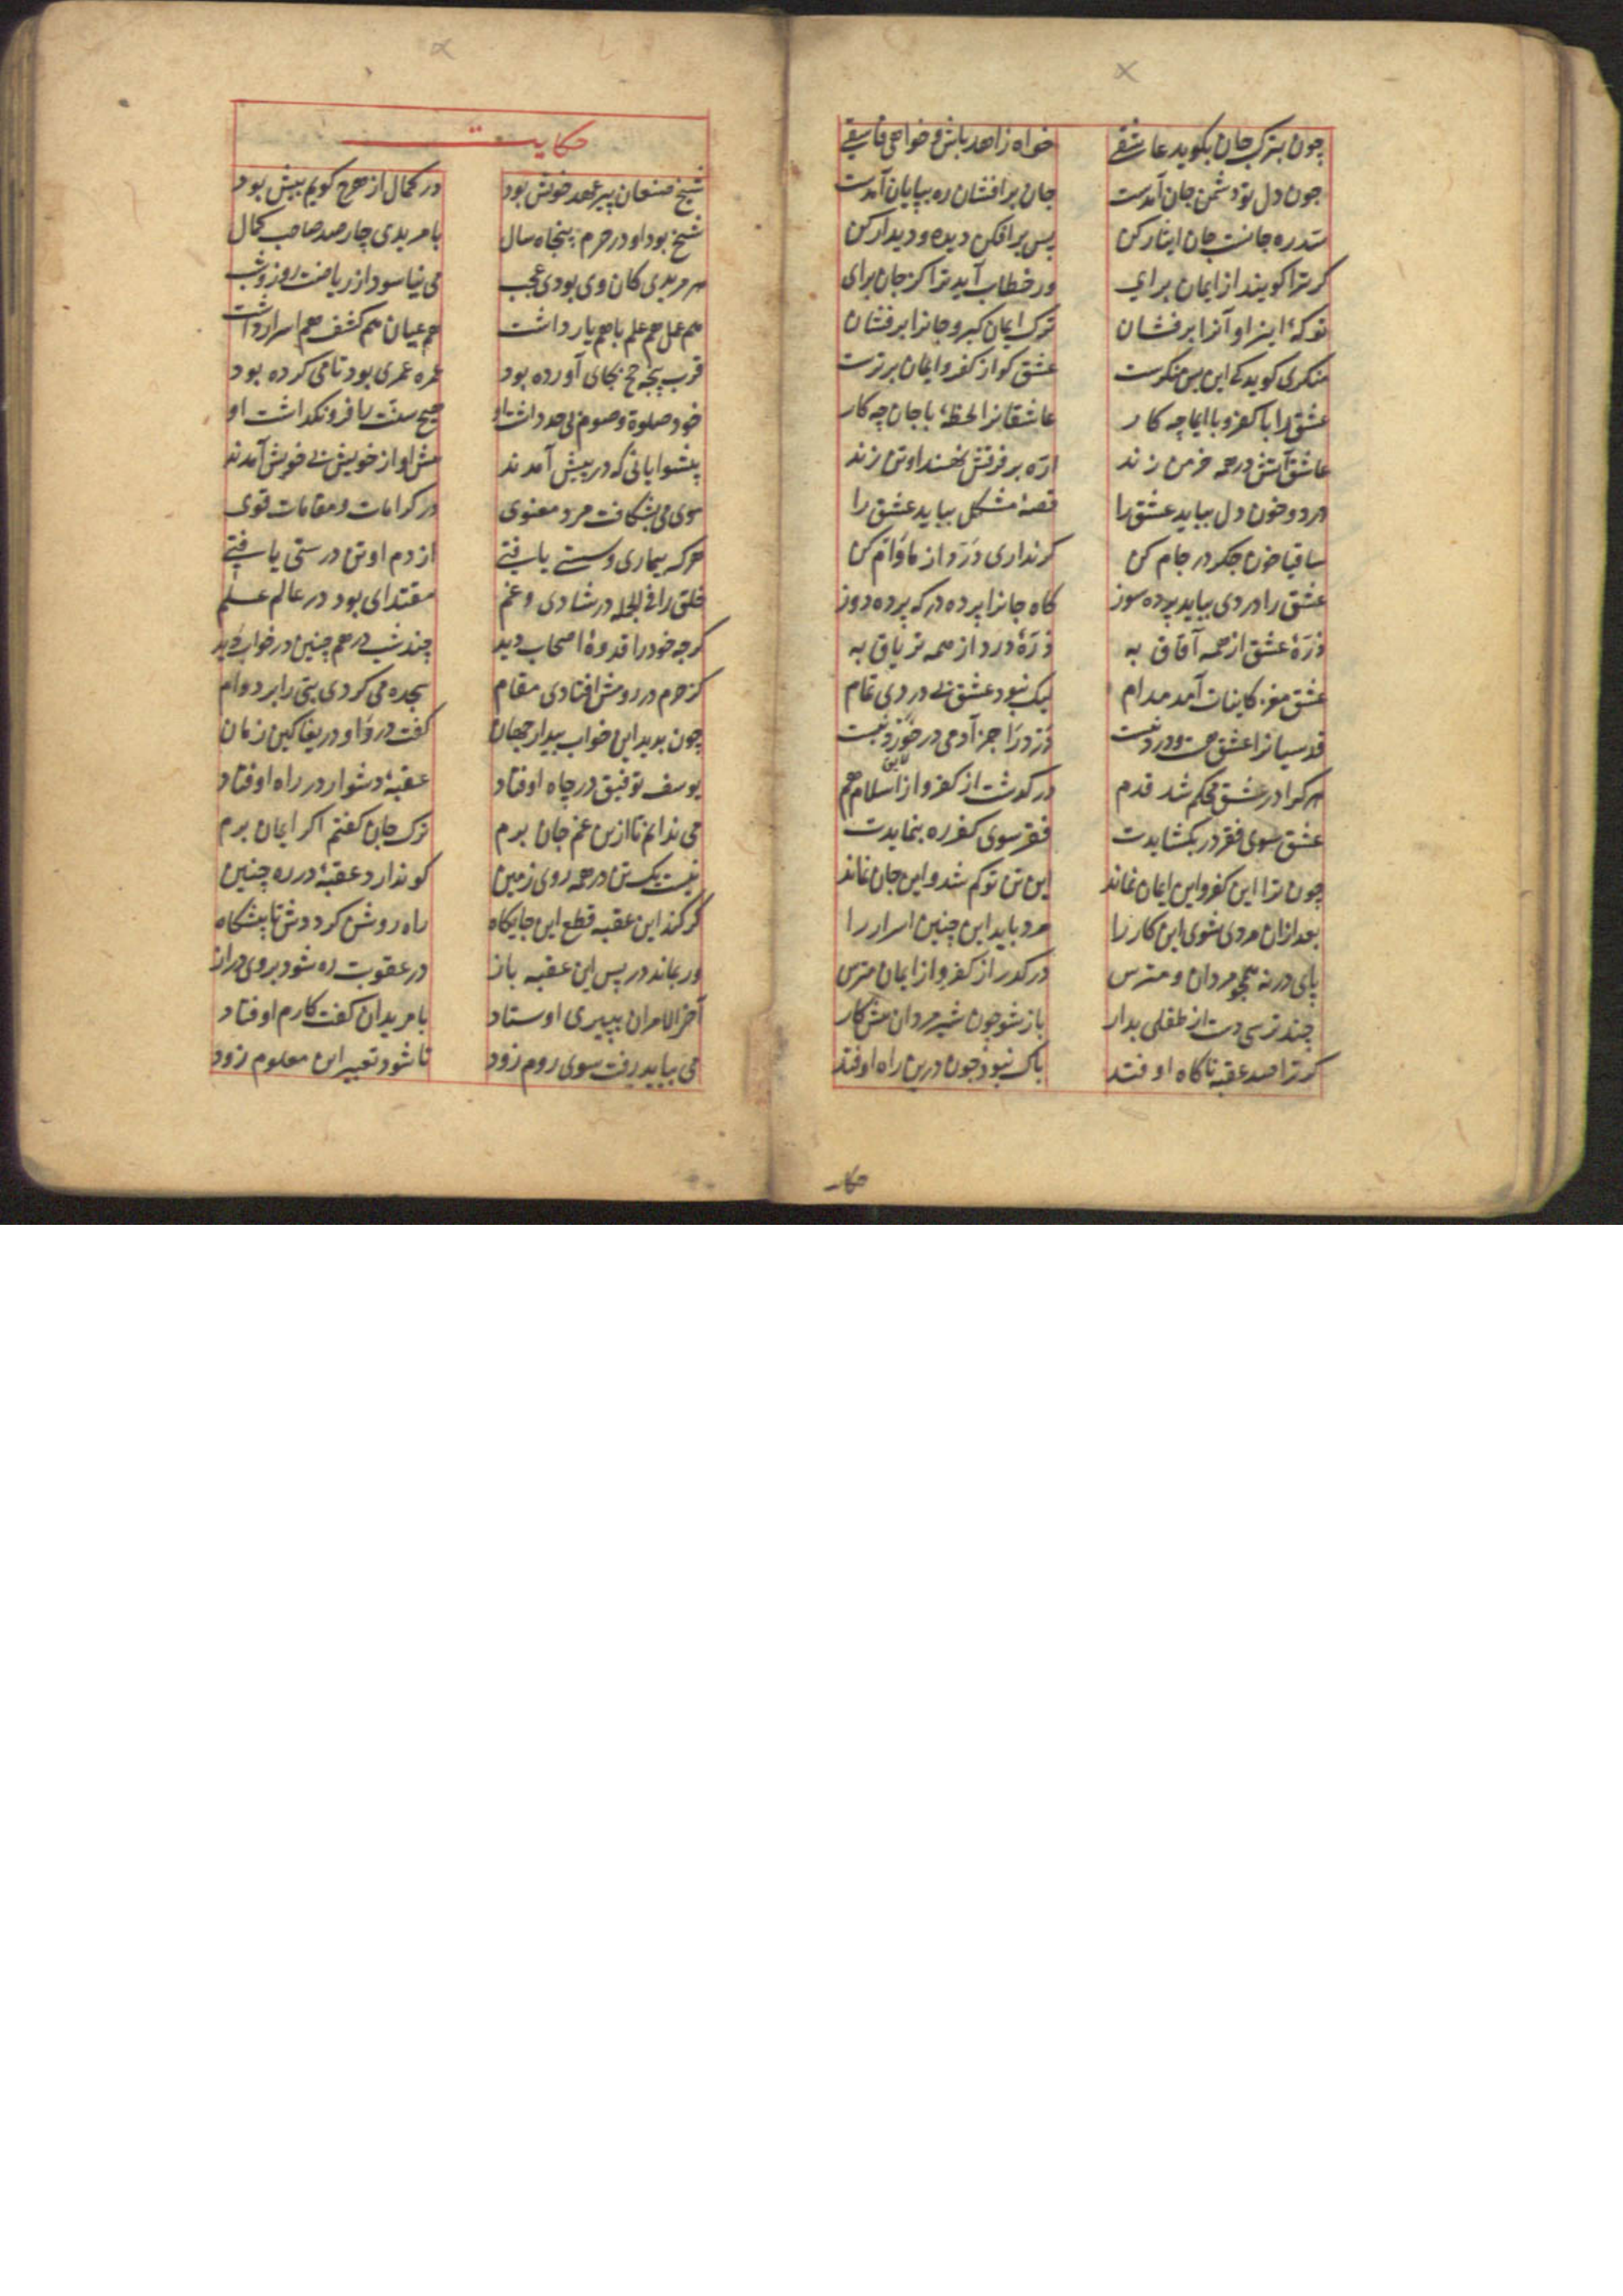 چون بترک جان بکوید عاشقے خواه زاهد باش و خواهی فاسقے
جون دل تو دشمن جان آمدست جان بر افشان ره بپایان آمدست
سدره جانست جان ایثار کن پس بر افکن دیده و دیدار کن
کر ترا کویند از ایمان برای ور خطاب آید ترا کز جان برای
تو کهٔ این را و آنرا بر فشان ترک ایمان کیر و جانرا بر فشان
منکری کوید که این بس منکرست عشق کو از کفر و ایمان برترست
عشق را با کفر و با ایما چه کار عاشقانرا لحظهٔ با جان چه کار
عاشق آتش در همه خرمن زند ارّه بر فرقش نهند او تن زند
درد و خون دل بباید عشق را قصهٔ مشکل بباید عشق را
ساقیا خون جکر در جام کن کر نداری دَرد از ما وام کن
عشق را دردی بباید پرده سوز کاه جانرا پرده در که پرده دوز
ذرّهٔ عشق از همه آفاق به ذرّهٔ درد از همه تریاق به
عشق مغز کاینات آمد مدام لیک نبود عشق بے دردی تمام
قدسیانرا عشق هست و درد نیست دَرد را جز آدمی در خَورد نیست
هرکرا در عشق محکم شد قدم در کذشت از کفر و از اسلام هم
عشق سوی فقر در بکشایدت فقر سوی کفر ره بنمایدت
چون ترا این کفر و این ایمان نماند این تن تو کم شد و این جان نماند
بعد ازان مردی شوی این کار را مرد باید این چنین اسرار را
پای درنه همچو مردان و مترس درکذر از کفر و از ایمان مترس
چند ترسی دست از طفلی بدار باز شو چون شیرمردان پیش کار
کر ترا صد عقبه ناکاه اوفتد باک نبود چون درین راه اوفتد
حکایت
شیخ صنعان پیر عهد خویش بود در کمال از هرچ کویم بیش بود
شیخ بود او در حرم پنجاه سال با مریدی چارصد صاحب کمال
هر مریدی کان وی بودی عجب می نیاسود از ریاضت روز و شب
هم عمل هم علم با هم یار داشت هم عیان هم کشف هم اسرار داشت
قرب پنجه حج بجای آورده بود عمره عمری بود تا می کرده بود
خود صلوة و صوم بی حد داشت او هیچ سنت را فرو نکذاشت او
پیشوایانی که در پیش آمدند پیش او از خویش بے خویش آمدند
موی می بشکافت مرد معنوی در کرامات و مقامات قوی
هرکه بیماری و سستے یافتے از دم او تن درستی یافتے
خلق را فی الجمله در شادی و غم مقتدای بود در عالم علم
کرچه خود را قدوهٔ اصحاب دید چند شب در هم چنین در خواب دید
کز حرم در رومش افتادی مقام سجده می کردی بتی را بر دوام
چون بدید این خواب بیدار جهان کفت دردا و دریغا کین زمان
یوسف توفیق در چاه اوفتاد عقبهٔ دشوار در راه اوفتاد
می ندانم تا ازین غم جان برم ترک جان کفتم اکر ایمان برم
نیست یک تن در همه روی زمین کو ندارد عقبهٔ در ره چنین
کر کند این عقبه قطع این جایکاه راه روشن کرددش تا پیشکاه
ور بماند در پس این عقبه باز در عقوبت ره شود بروی دراز
آخر الامر ان بپیری اوستاد با مریدان کفت کارم اوفتاد
می بباید رفت سوی روم زود تا شود تعبیر این معلوم زود
حکا